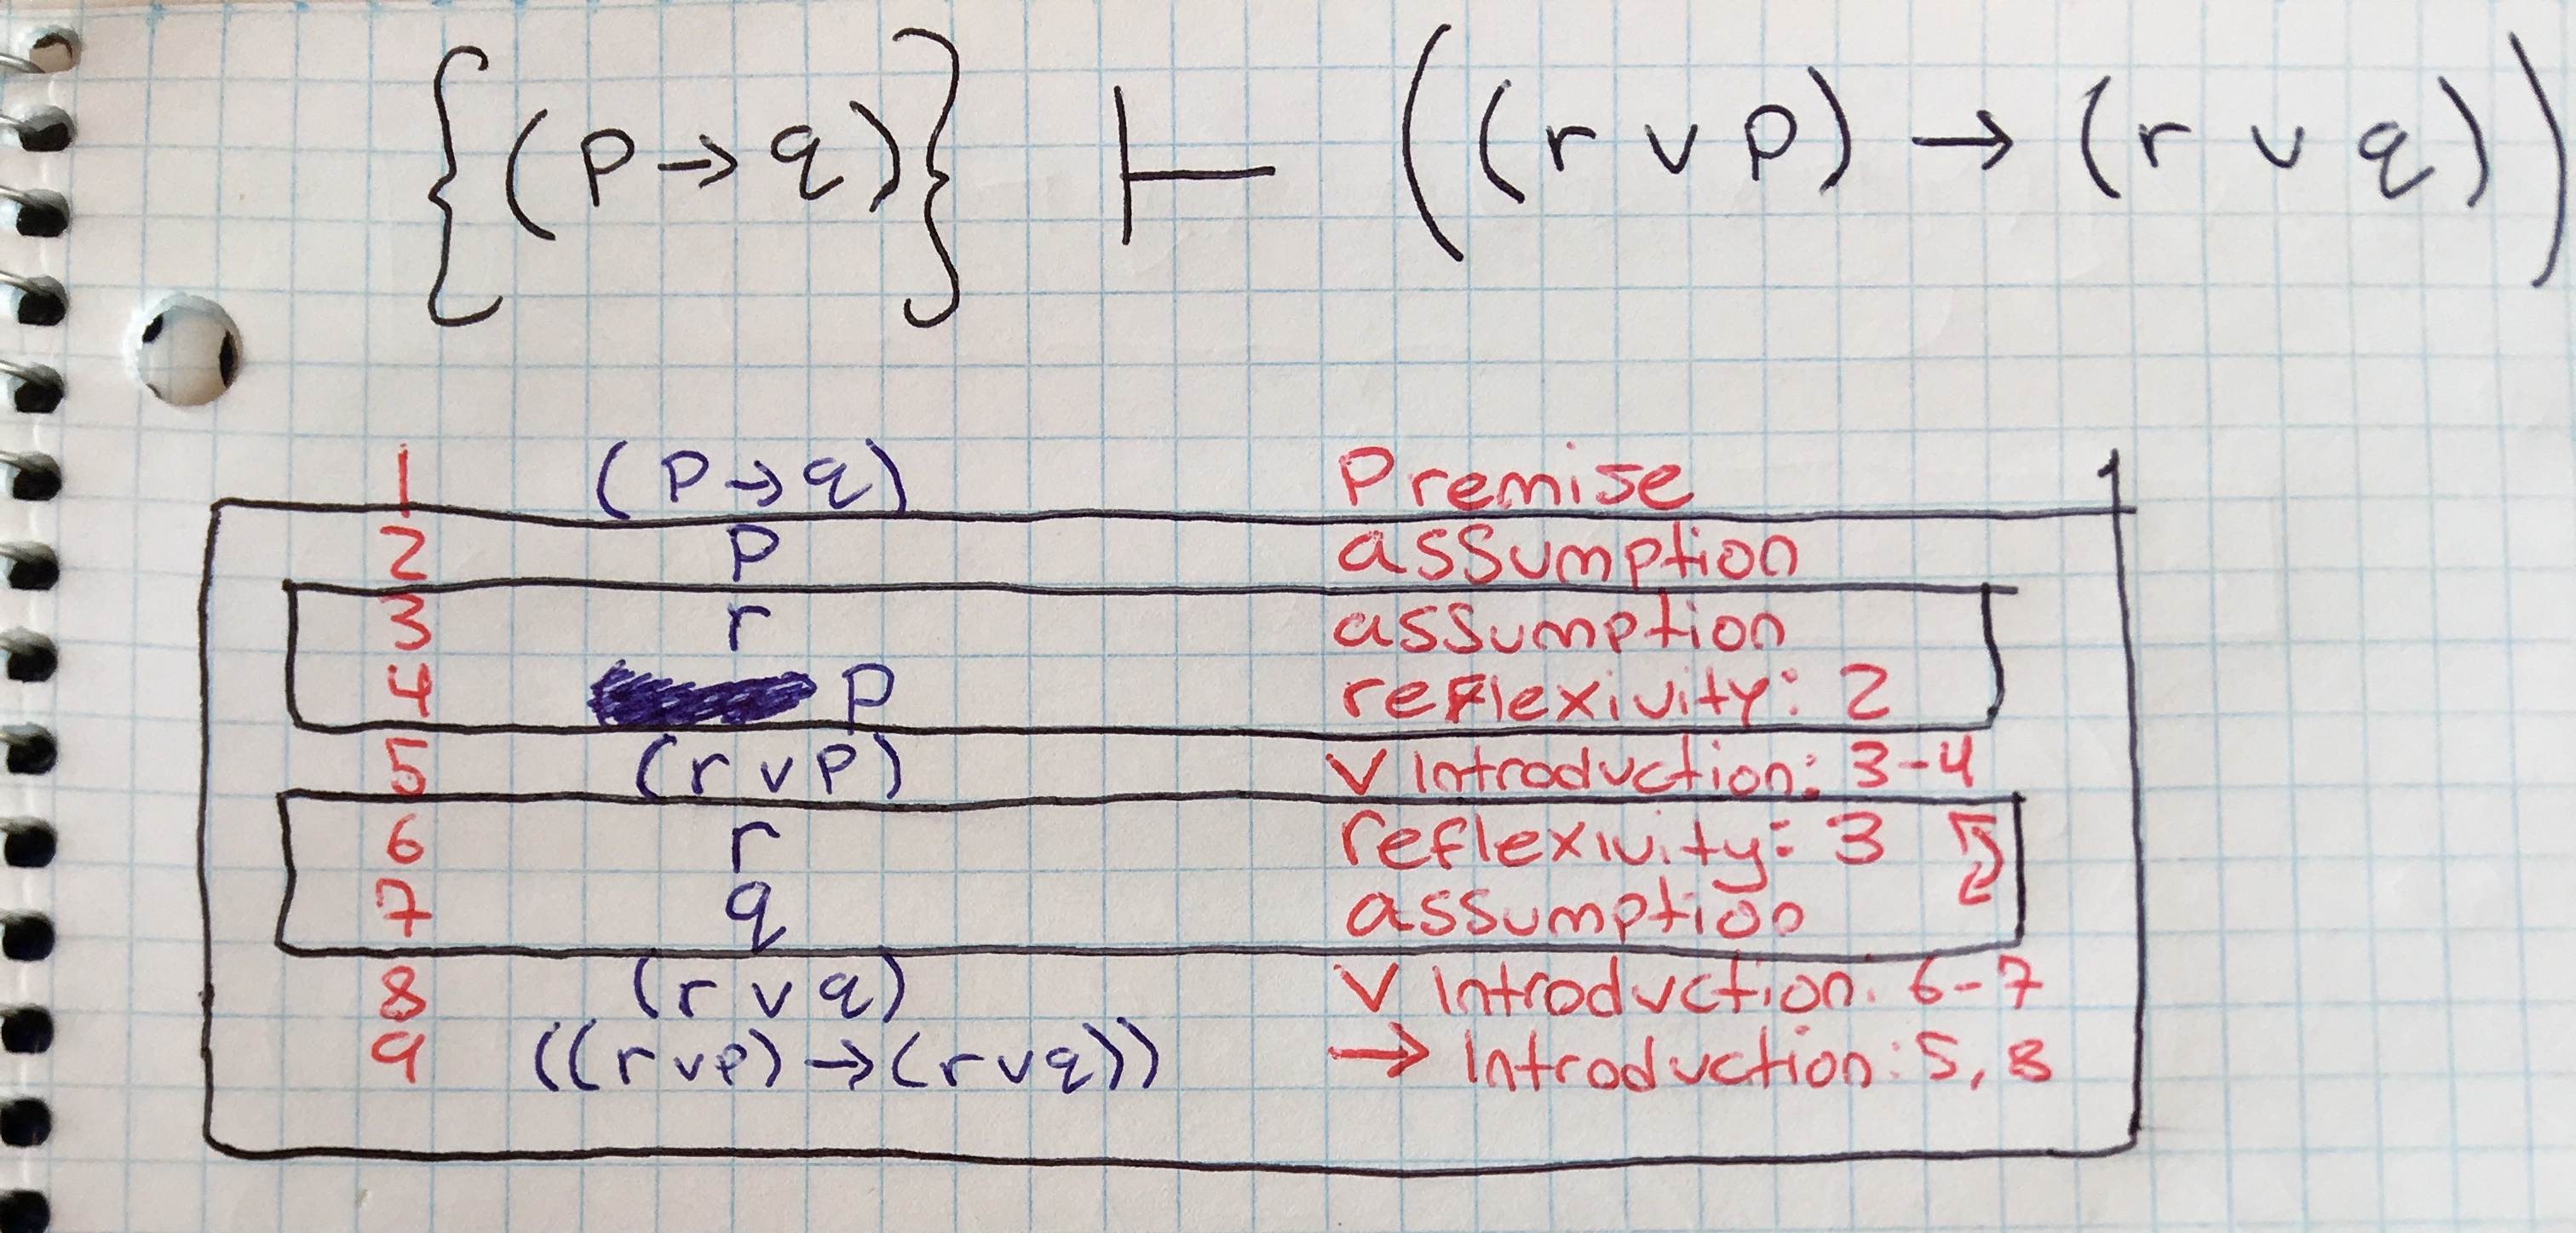 {(p → q)} ⊢ ((r ∨ p) → (r ∨ q))
1 (p → q) Premise
2 p assumption
3 r assumption
4 p reflexivity: 2
5 (r ∨ p) ∨ Introduction: 3-4
6 r reflexivity: 3
7 q assumption
8 (r ∨ q) ∨ Introduction: 6-7
9 ((r ∨ p) → (r ∨ q)) → Introduction: 5, 8